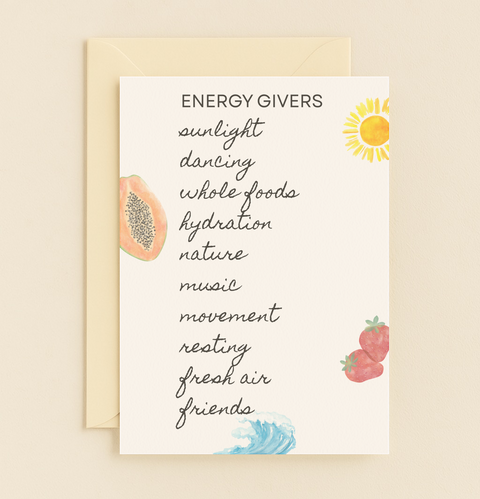 ENERGY GIVERS
sunlight
dancing
whole foods
hydration
nature
music
movement
resting
fresh air
friends